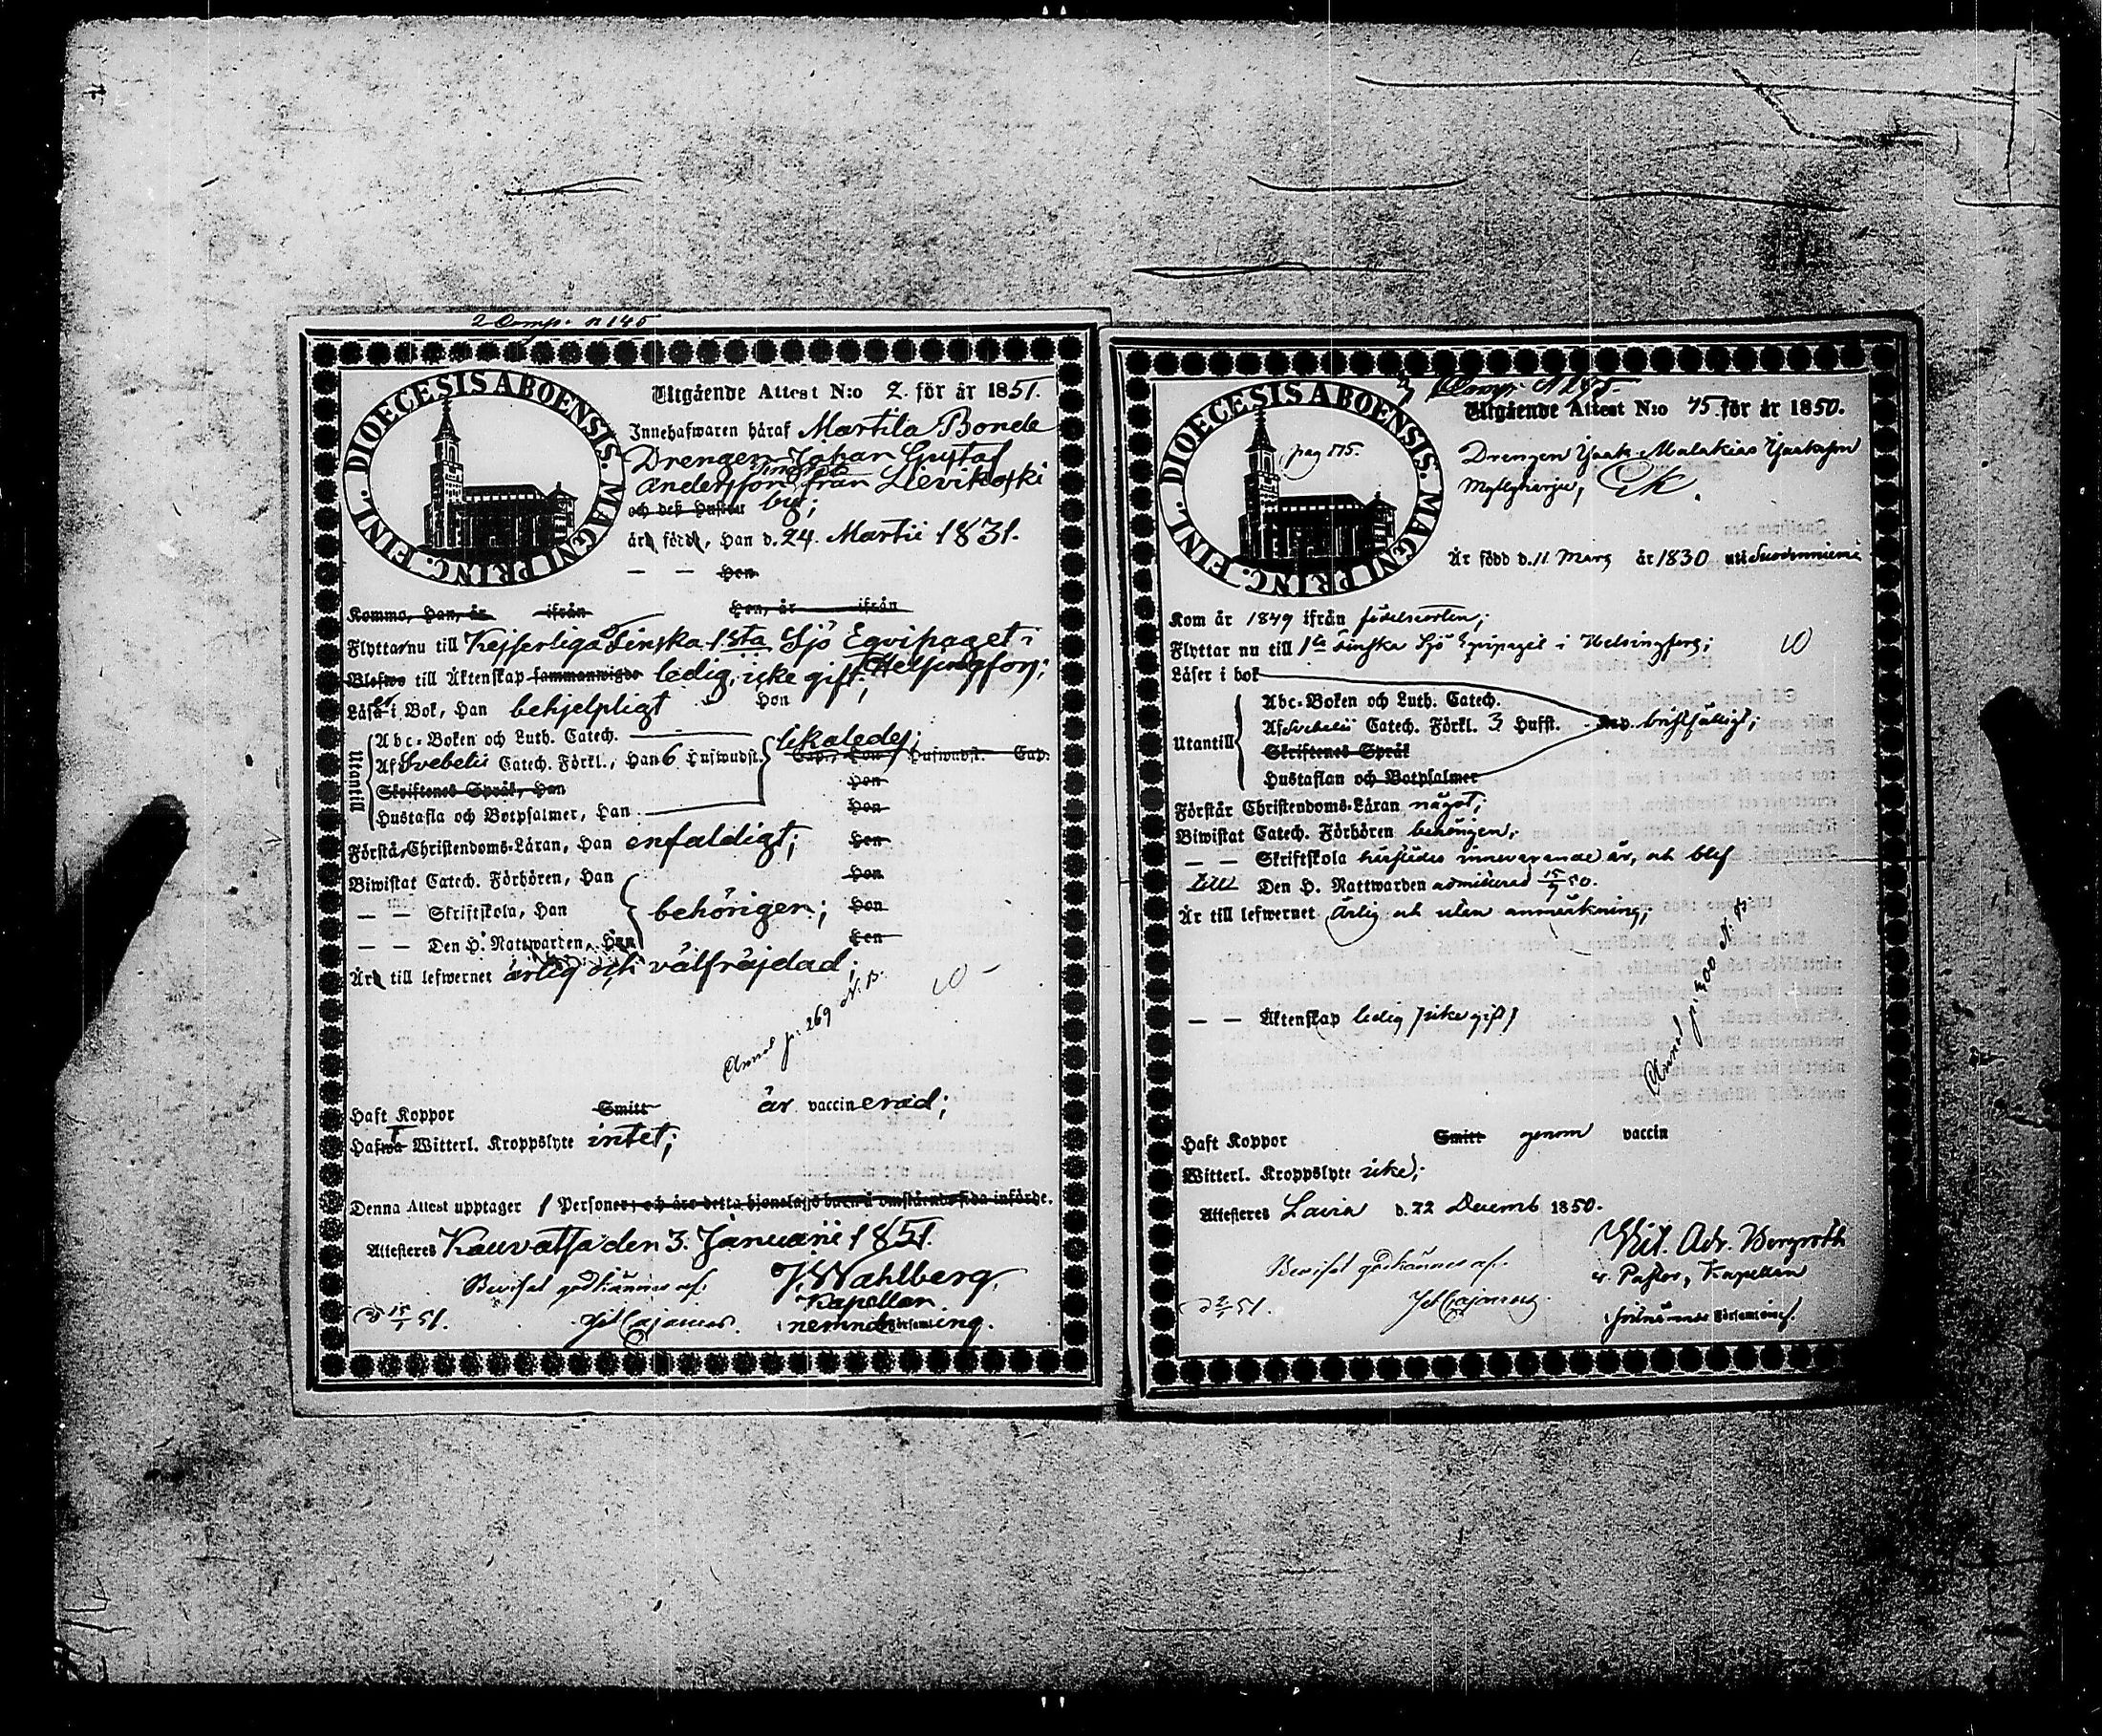 2 Comp. n 145
DIOECESIS ABOENSIS. MAGNI PRINC. FINL.
Utgående Attest N:o 2. för år 1851.
Innehafwaren häraf Martila Bonde
Drengen Johan Gustaf
Andersson från Lievikoski
och deß Hustru by;
är född, Han d. 24. Martii 1831.
— — Hon
Komme, Han, år ifrån Hon, år ifrån
Flyttar nu till Kejserliga Finska 1sta Sjö Eqvipaget i
Helsingfors;
till Äktenskap sammanwigde ledig, icke gift;
Läser i Bok, Han behjelpligt Hon
Utantill
Abc-Boken och Luth. Catech.
Af Svebelii Catech. Förkl., Han 6 Hufwudst. likaledes;
Cap., Hon Hufwudst. Cap.
Skriftenes Språk, Han Hon
Hustafla och Botpsalmer, Han Hon
Förstår Christendoms-Läran, Han enfaldigt; Hon
Biwistat Catech. Förhören, Han Hon
— — Skriftskola, Han behörigen; Hon
— — Den H. Nattwarden, Han Hon
Är till lefwernet ärlig och välfräjdad;
Annot p: 269 N. B.
Haft Koppor Smitt är vaccinerad;
Haft Witterl. Kroppslyte intet;
Denna Attest upptager 1 Personer; och äro detta hjonelags barn å omstående sida införde.
Attesteras Kauvatsa den 3. Januarii 1851.
J. Wahlberg,
Kapellan
i nemnde Församling.
Beviset godkännes af.
Comp. N 185.
DIOECESIS ABOENSIS. MAGNI PRINC. FINL.
pag 175.
Utgående Attest N:o 75 för år 1850.
Drengen Isaak Malakias Isaaksson
Är född d. 11 Mars år 1830 uti Suodenniemi
Kom år 1849 ifrån födelseorten;
Flyttar nu till 1sta Finska Sjö Eqvipaget i Helsingfors;
Läser i bok
Utantill
Abc-Boken och Luth. Catech.
Af Svebelii Catech. Förkl. 3 Hufst. Cap. bristfälligt;
Skriftenes Språk
Hustaflan och Botpsalmer
Förstår Christendoms-Läran något;
Biwistat Catech. Förhören behörigen;
— — Skriftskola härstädes innevarande år, och blef
till Den H. Nattwarden admitterad 15/9 50.
Är till lefwernet ärlig och utan anmärkning;
— — Äktenskap ledig (icke gift)
Annot p: 300 N. B.
Haft Koppor Smitt genom vaccin
Witterl. Kroppslyte icke;
Attesteras Lavia d. 22 Decemb 1850.
Vit. Adr. Bergroth
v. Pastor, Kapellan
i förenämnde Församling.
Beviset godkännes af.